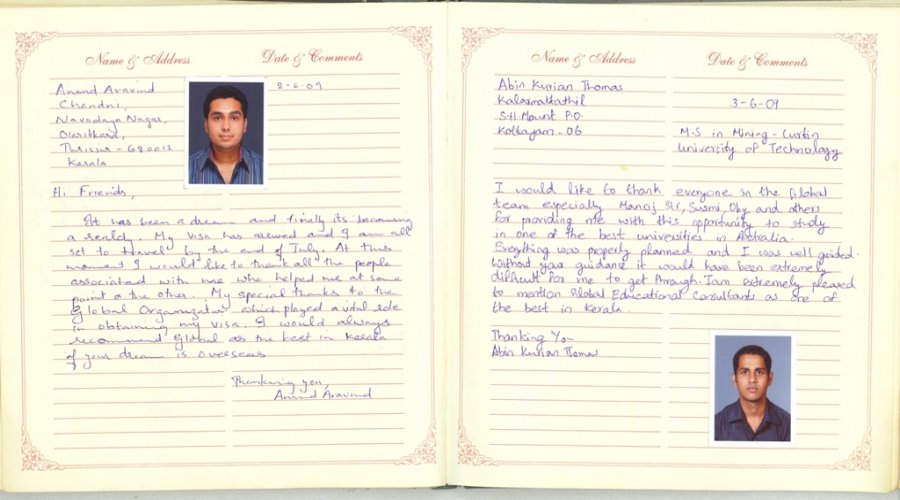 Name & Address
Date & Comments
Anand Aravind
Chandni,
Navodaya Nagar,
Olarikhara,
Thrissur - 680012
Kerala
2-6-09
Hi Friends,
It has been a dream and finally its becoming
a reality. My visa has and I am all
set to travel by the end of July. At this
moment I would like to thank all the people
associated with me who helped me at some
point or the other. My special thanks to the
Global Organization which played a vital role
in obtaining my visa. I would always
recommend Global as the best in Kerala
if your dream is overseas
Thanking you,
Anand Aravind
Name & Address
Date & Comments
Abin Kurian Thomas
Kalarmattathil
S.H. Mount P.O.
Kottayam - 06
3-6-09
M.S in Mining - Curtin
University of Technology
I would like to thank everyone in the Global
team especially Manoj Sir, Susmi, and others
for providing me with this opportunity to study
in one of the best universities in Australia.
Everything was properly planned and I was well guided.
Without your guidance it would have been extremely
difficult for me to get through. I am extremely pleased
to mention Global Educational Consultants as one of
the best in Kerala.
Thanking You
Abin Kurian Thomas